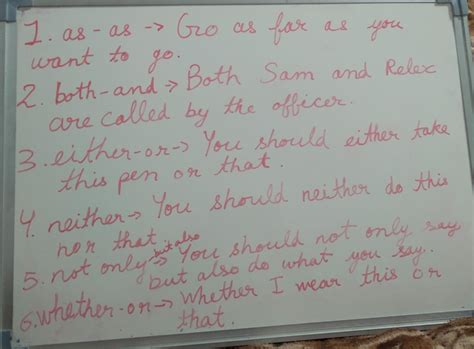 1. as-as -> Go as far as you
want to go.
2. both-and -> Both Sam and Relex
are called by the officer.
3. either-or -> You should either take
this pen or that.
4. neither -> You should neither do this
nor that.
but also
5. not only -> You should not only say
but also do what you say.
6. whether-or -> Whether I wear this or
that.